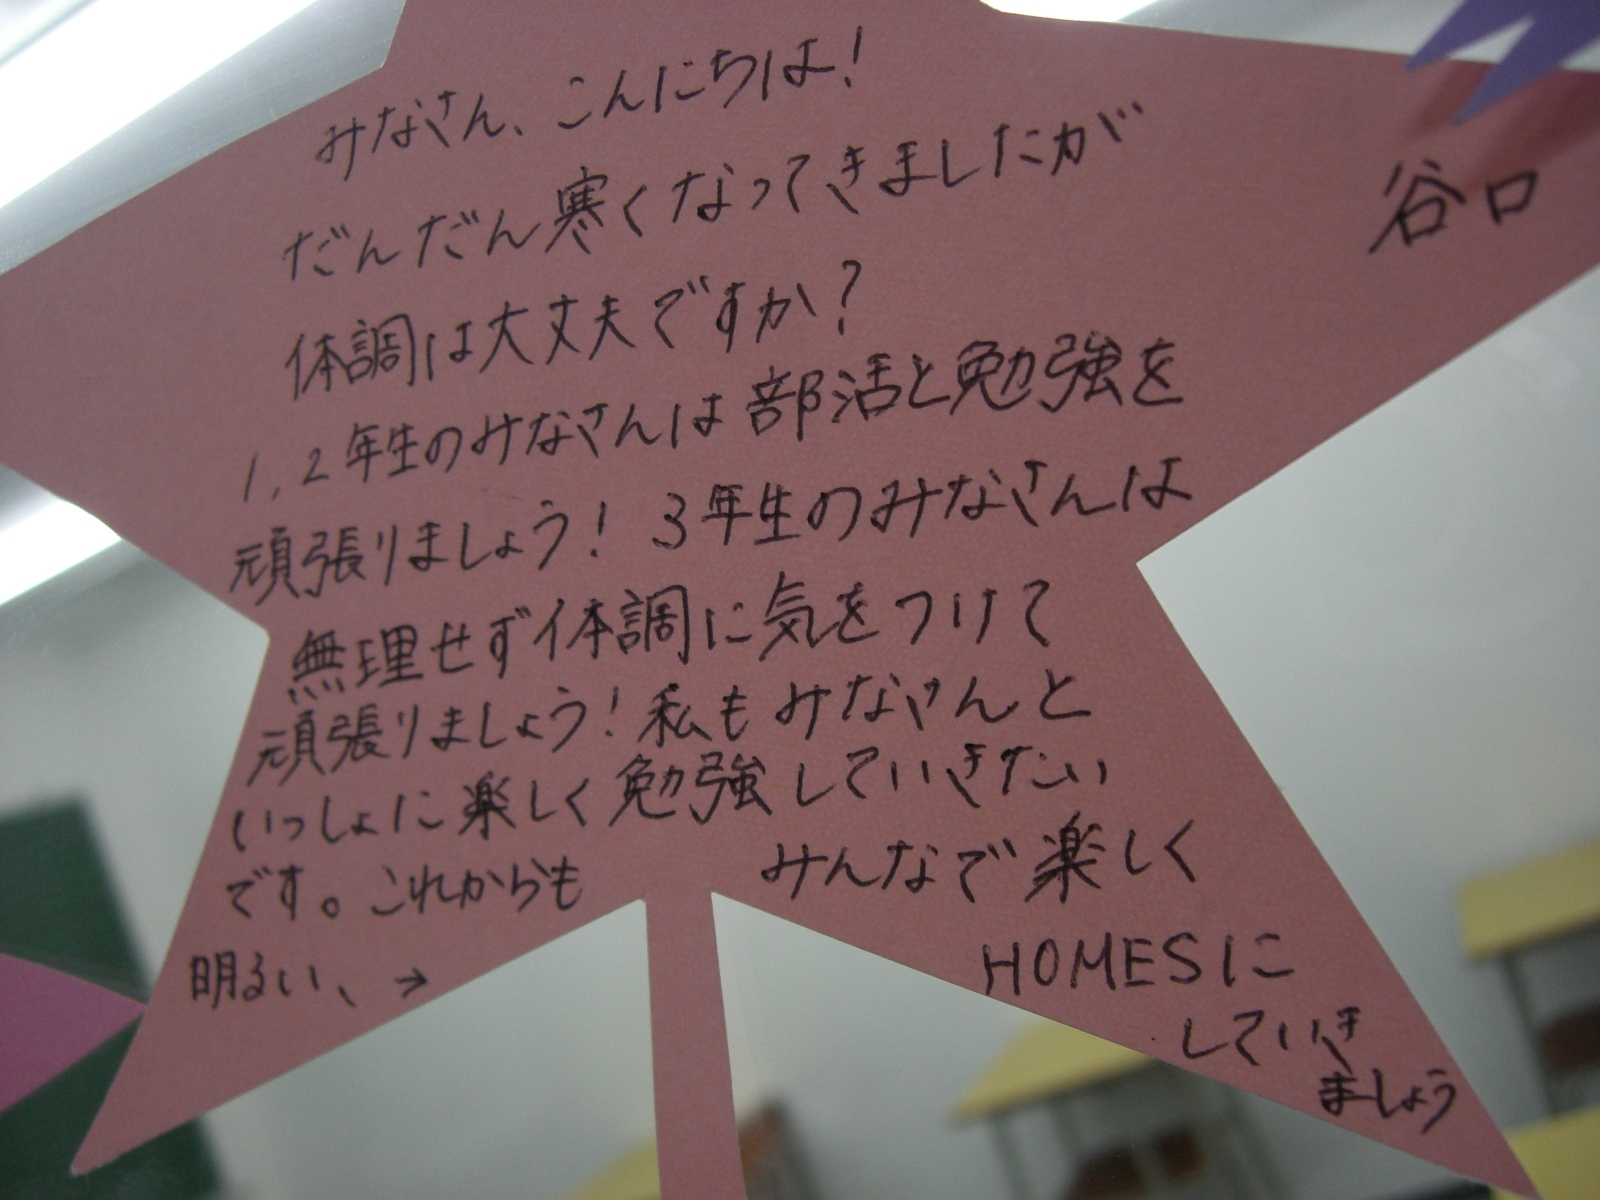 みなさん、こんにちは!
だんだん寒くなってきましたが
体調は大丈夫ですか?
1,2年生のみなさんは部活と勉強を
頑張りましょう! 3年生のみなさんは
無理せず体調に気をつけて
頑張りましょう!私もみなさんと
いっしょに楽しく勉強していきたい
です。これからも
明るい、→
みんなで楽しく
HOMESに
していき
ましょう
谷口